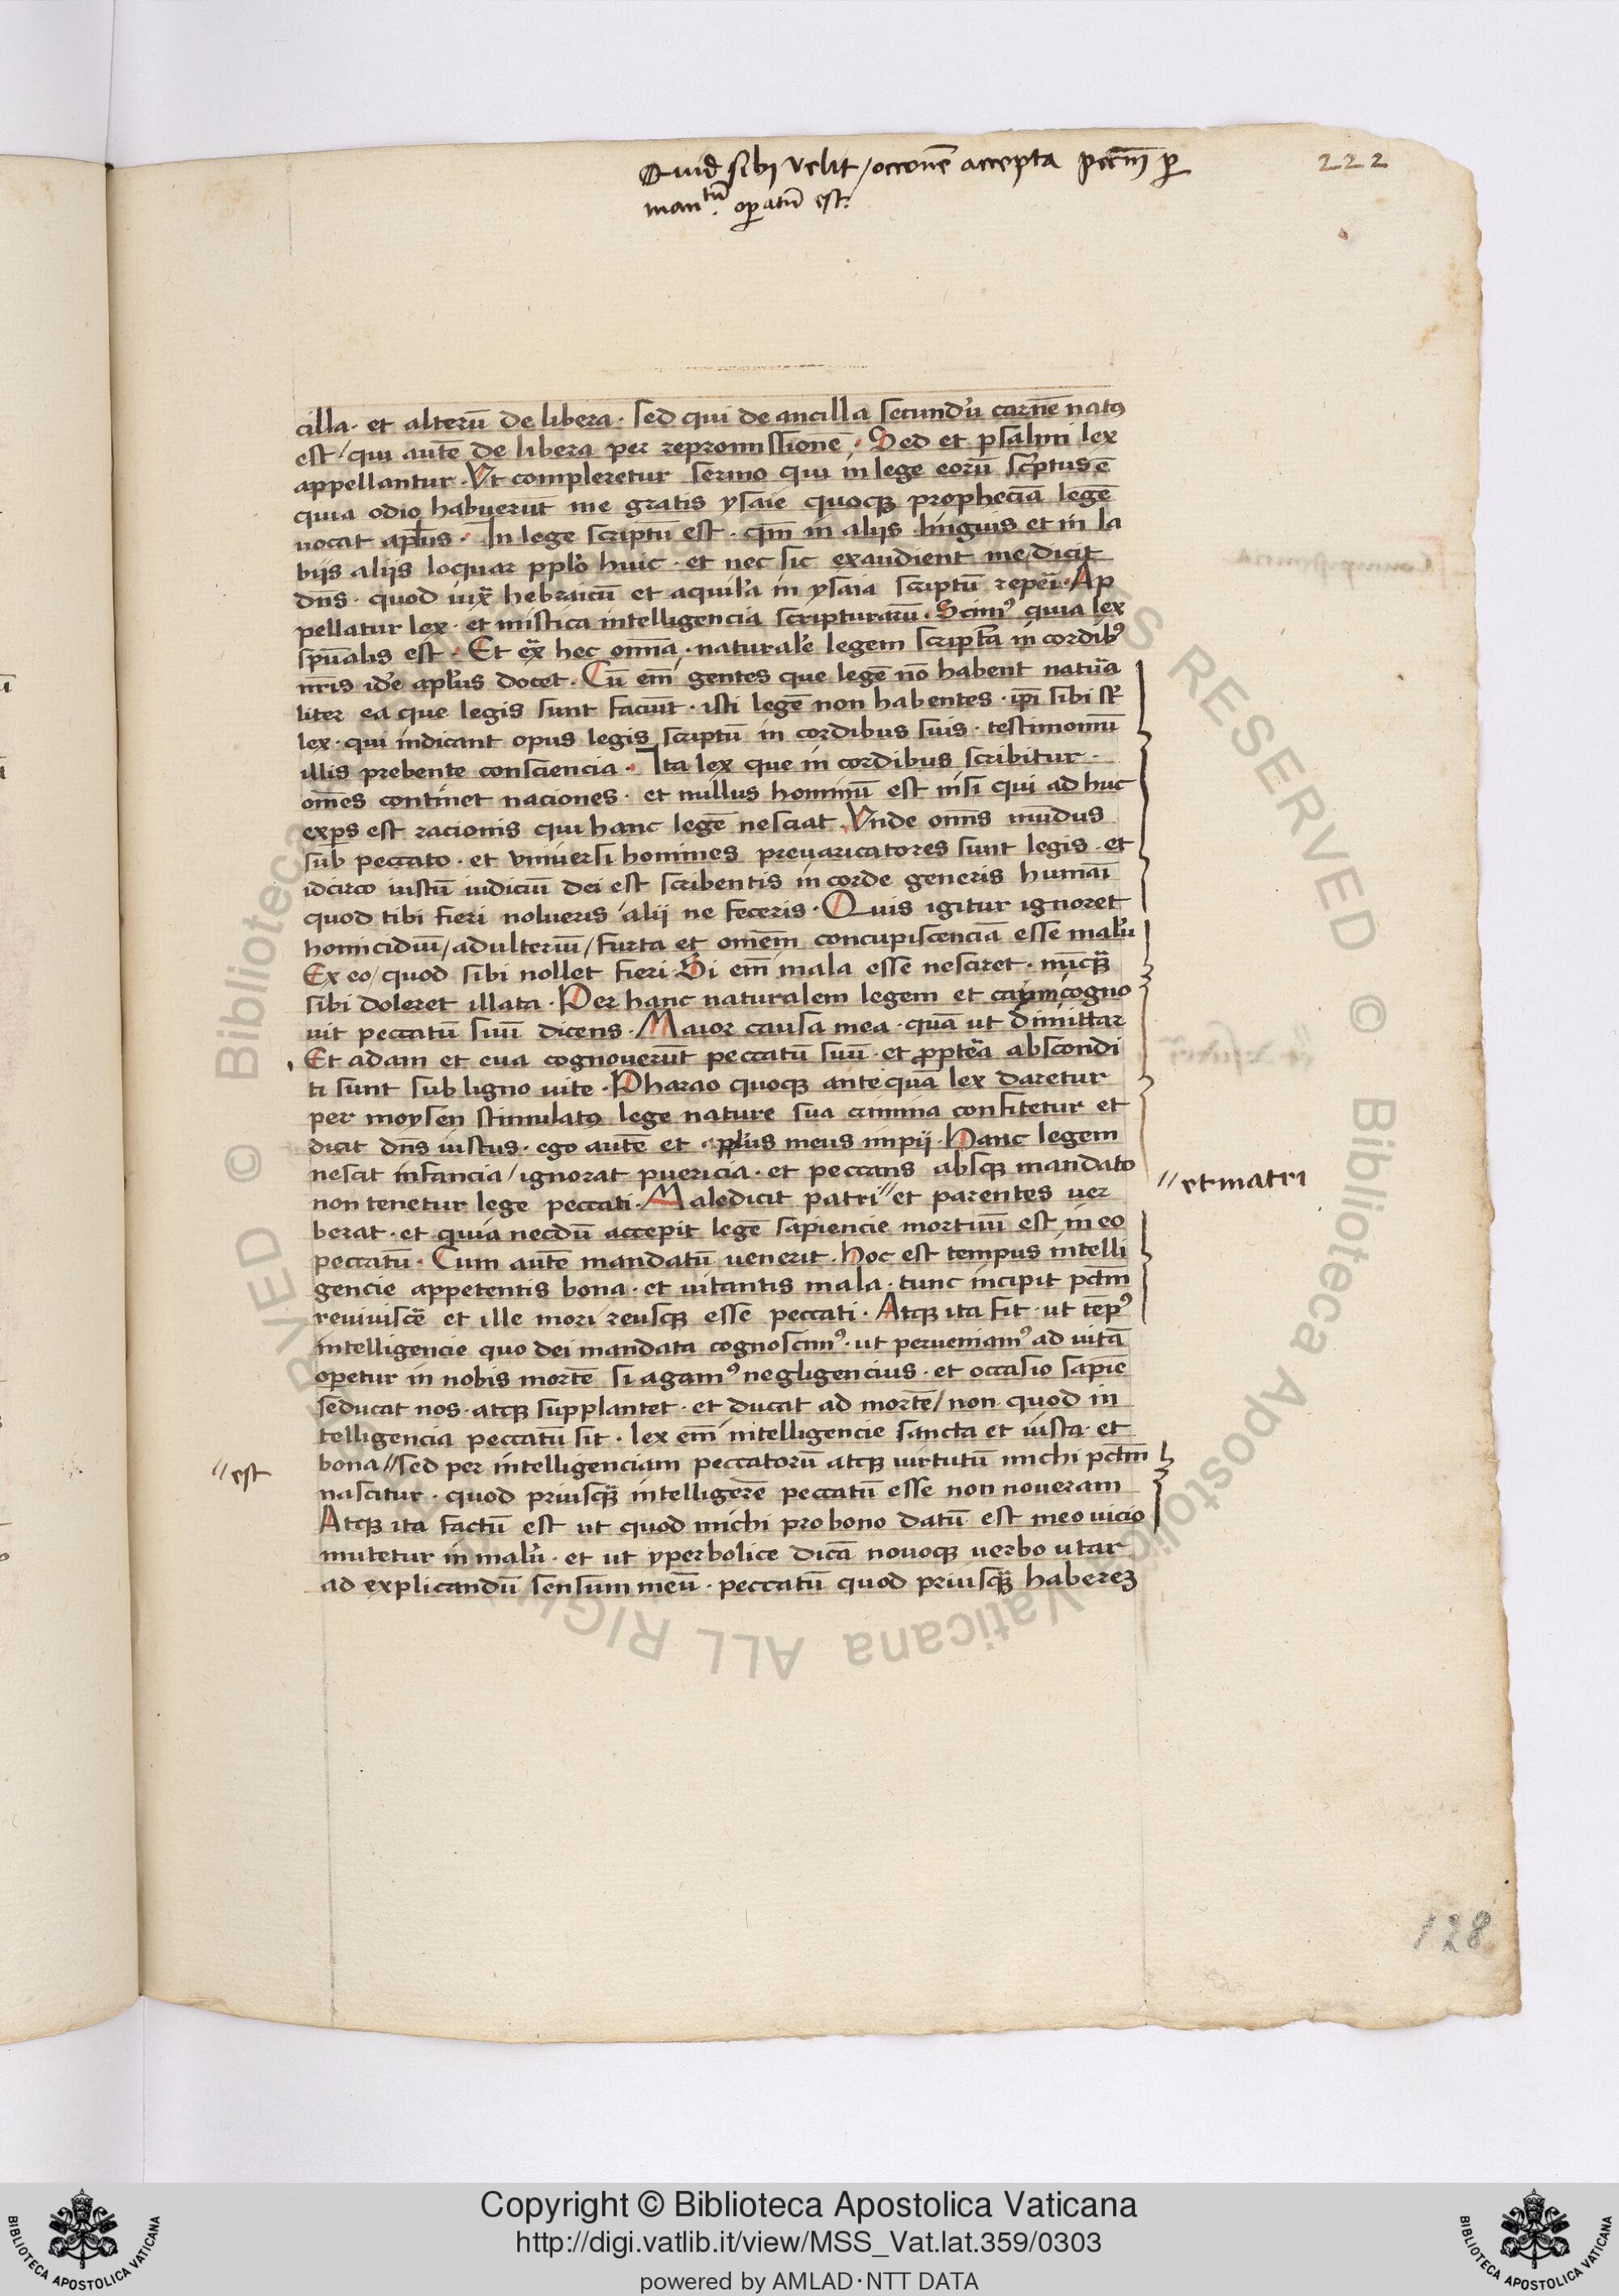 Quid sibi velit / occonē accepta pctm̄ ꝑ
manᵗū. oꝑatū est.
222
cilla · et alterū de libera · sed qui de ancilla secundū carnē natꝰ
est / qui autē de libera per repromissionē · Sed et psalmi lex
appellantur · Vt compleretur sermo qui in lege eorū sc̄ptus ē
quia odio habuerūt me gratis ysaie quoqꝫ propheciā legē
uocat apl̄us · In lege scriptū est · qm̄ in alijs linguis et in la
bijs alijs loquar pplo huic · et nec sic exaudient me dicit
dn̄s · quod iux̄ hebraicū et aquila in ysaia scriptū reperi · Ap
pellatur lex · et mistica intelligencia scripturarū · Scimꝰ quia lex
spūalis est · Et ex̄ hec omnia · naturalē legem scriptā in cordibꝰ
nr̄is idē apl̄us docet · Cū em̄ gentes que legē nō habent natura
liter ea que legis sunt faciūt · isti legē non habentes · ip̄i sibi st̄
lex · qui indicant opus legis scriptū in cordibus suis · testimoniū
illis prebente consciencia · Ita lex que in cordibus scribitur ·
om̄es continet naciones · et nullus hominū est nisi qui ad huc
expers est racionis qui hanc legē nesciat · Vnde omnis mūdus
sub peccato · et vniuersi homines preuaricatores sunt legis · et
idcirco iustū iudiciū dei est scribentis in corde generis humāi
quod tibi fieri nolueris alij ne feceris · Quis igitur ignoret
homicidiū / adulteriū / furta et omēm concupiscenciā esse malū
Ex eo / quod sibi nollet fieri · Si em̄ mala esse nesciret · nūcqꝫ
sibi doleret illata · Per hanc naturalem legem et caym cogno
uit peccatū suū dicens · Maior causa mea · quā ut dimittar
Et adam et eua cognouerūt peccatū suū · et ꝓptēa abscondi
ti sunt sub ligno uite · Pharao quoqꝫ antequā lex daretur
per moysen stimulatꝰ lege nature sua crimina confitetur et
dicit dn̄s iustus · ego autē et apl̄us meus impij · Hanc legem
nescit infancia / ignorat puericia · et peccans absqꝫ mandato
non tenetur lege peccati · Maledicit patri // et parentes uer
// et matri
berat · et quia necdū accepit legē sapiencie mortuū est in eo
peccatū · Cum autē mandatū uenerit · hoc est tempus intelli
gencie appetentis bona · et uitantis mala · tunc incipit pctm̄
reuiuiscē et ille mori reusqꝫ esse peccati · Atqꝫ ita fit · ut tēpꝰ
intelligencie quo dei mandata cognoscimꝰ · ut perueniamꝰ ad uitā
operetur in nobis mortē si agamꝰ negligencius · et occasio sapiē
seducat nos · atqꝫ supplantet · et ducat ad mortē / non quod in
telligencia peccatū sit · lex em̄ intelligencie sancta et iusta · et
bona // sed per intelligenciam peccatorū atqꝫ uirtutū michi pctm̄
// est
nascitur · quod priusqꝫ intelligerē peccatū esse non noueram
Atqꝫ ita factū est ut quod michi pro bono datū est meo uicio
mutetur in malū · et ut yperbolice dicā nouoqꝫ uerbo utar
ad explicandū sensum meū · peccatū quod priusqꝫ habereꝫ
128
Copyright © Biblioteca Apostolica Vaticana
http://digi.vatlib.it/view/MSS_Vat.lat.359/0303
powered by AMLAD·NTT DATA
BIBLIOTECA APOSTOLICA VATICANA
BIBLIOTECA APOSTOLICA VATICANA